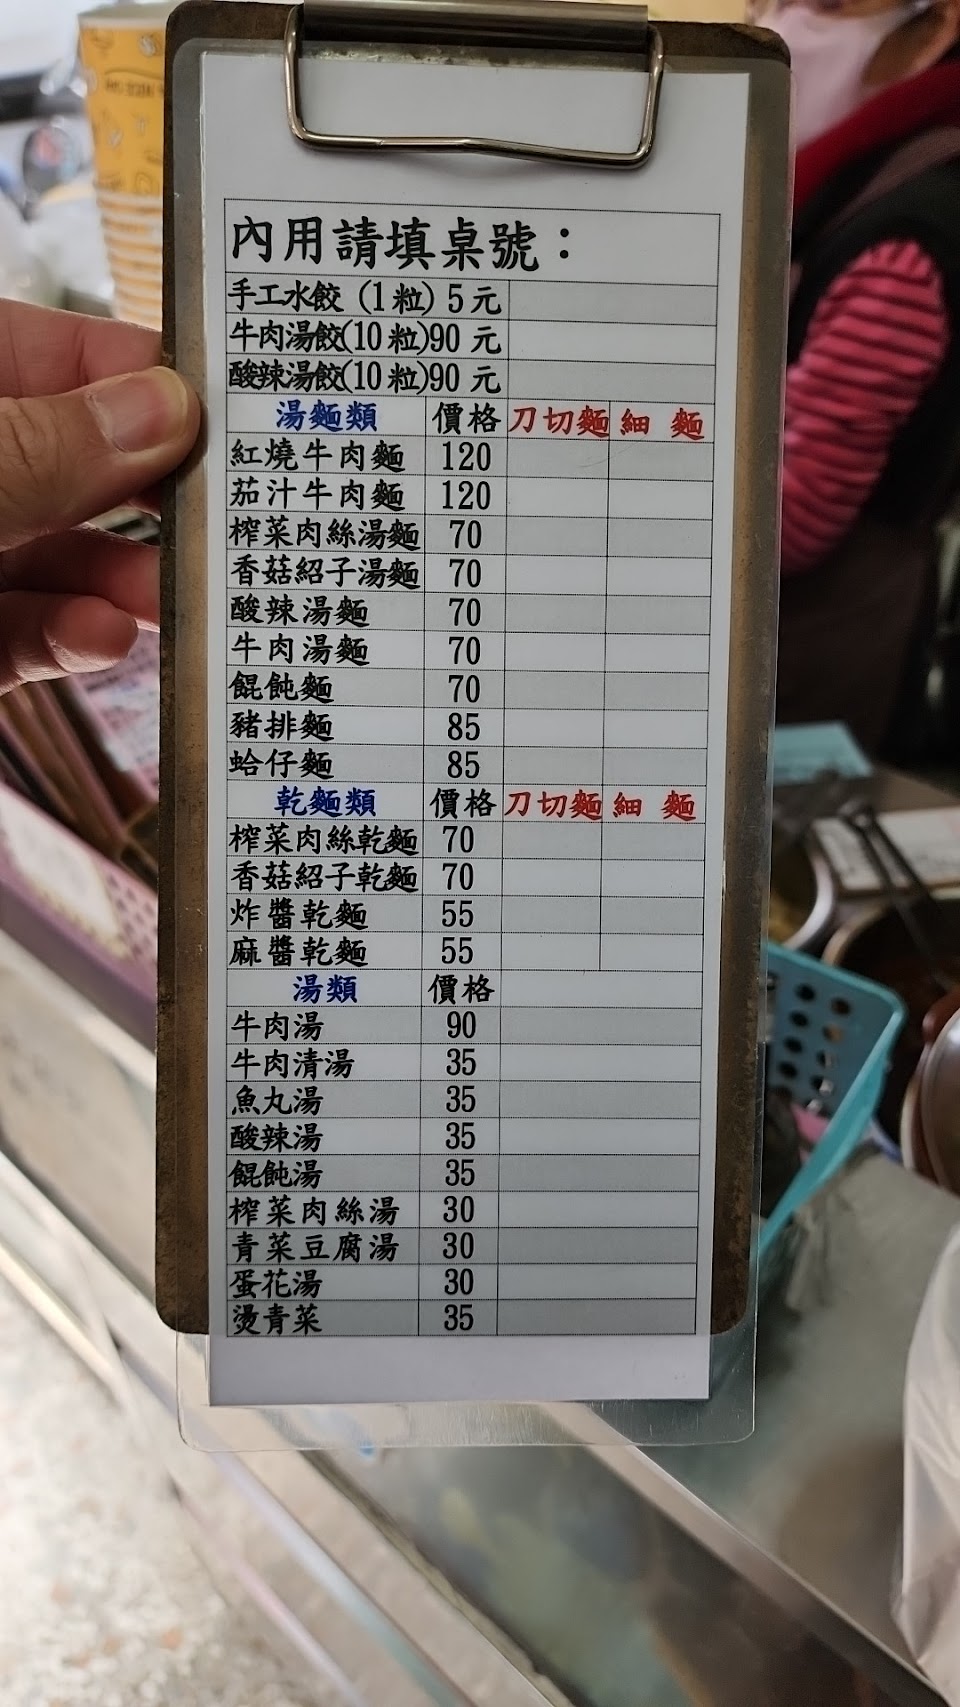 內用請填桌號：
手工水餃（1粒）5元
牛肉湯餃(10粒)90元
酸辣湯餃(10粒)90元
湯麵類 價格 刀切麵 細 麵
紅燒牛肉麵 120
茄汁牛肉麵 120
榨菜肉絲湯麵 70
香菇紹子湯麵 70
酸辣湯麵 70
牛肉湯麵 70
餛飩麵 70
豬排麵 85
蛤仔麵 85
乾麵類 價格 刀切麵 細 麵
榨菜肉絲乾麵 70
香菇紹子乾麵 70
炸醬乾麵 55
麻醬乾麵 55
湯類 價格
牛肉湯 90
牛肉清湯 35
魚丸湯 35
酸辣湯 35
餛飩湯 35
榨菜肉絲湯 30
青菜豆腐湯 30
蛋花湯 30
燙青菜 35